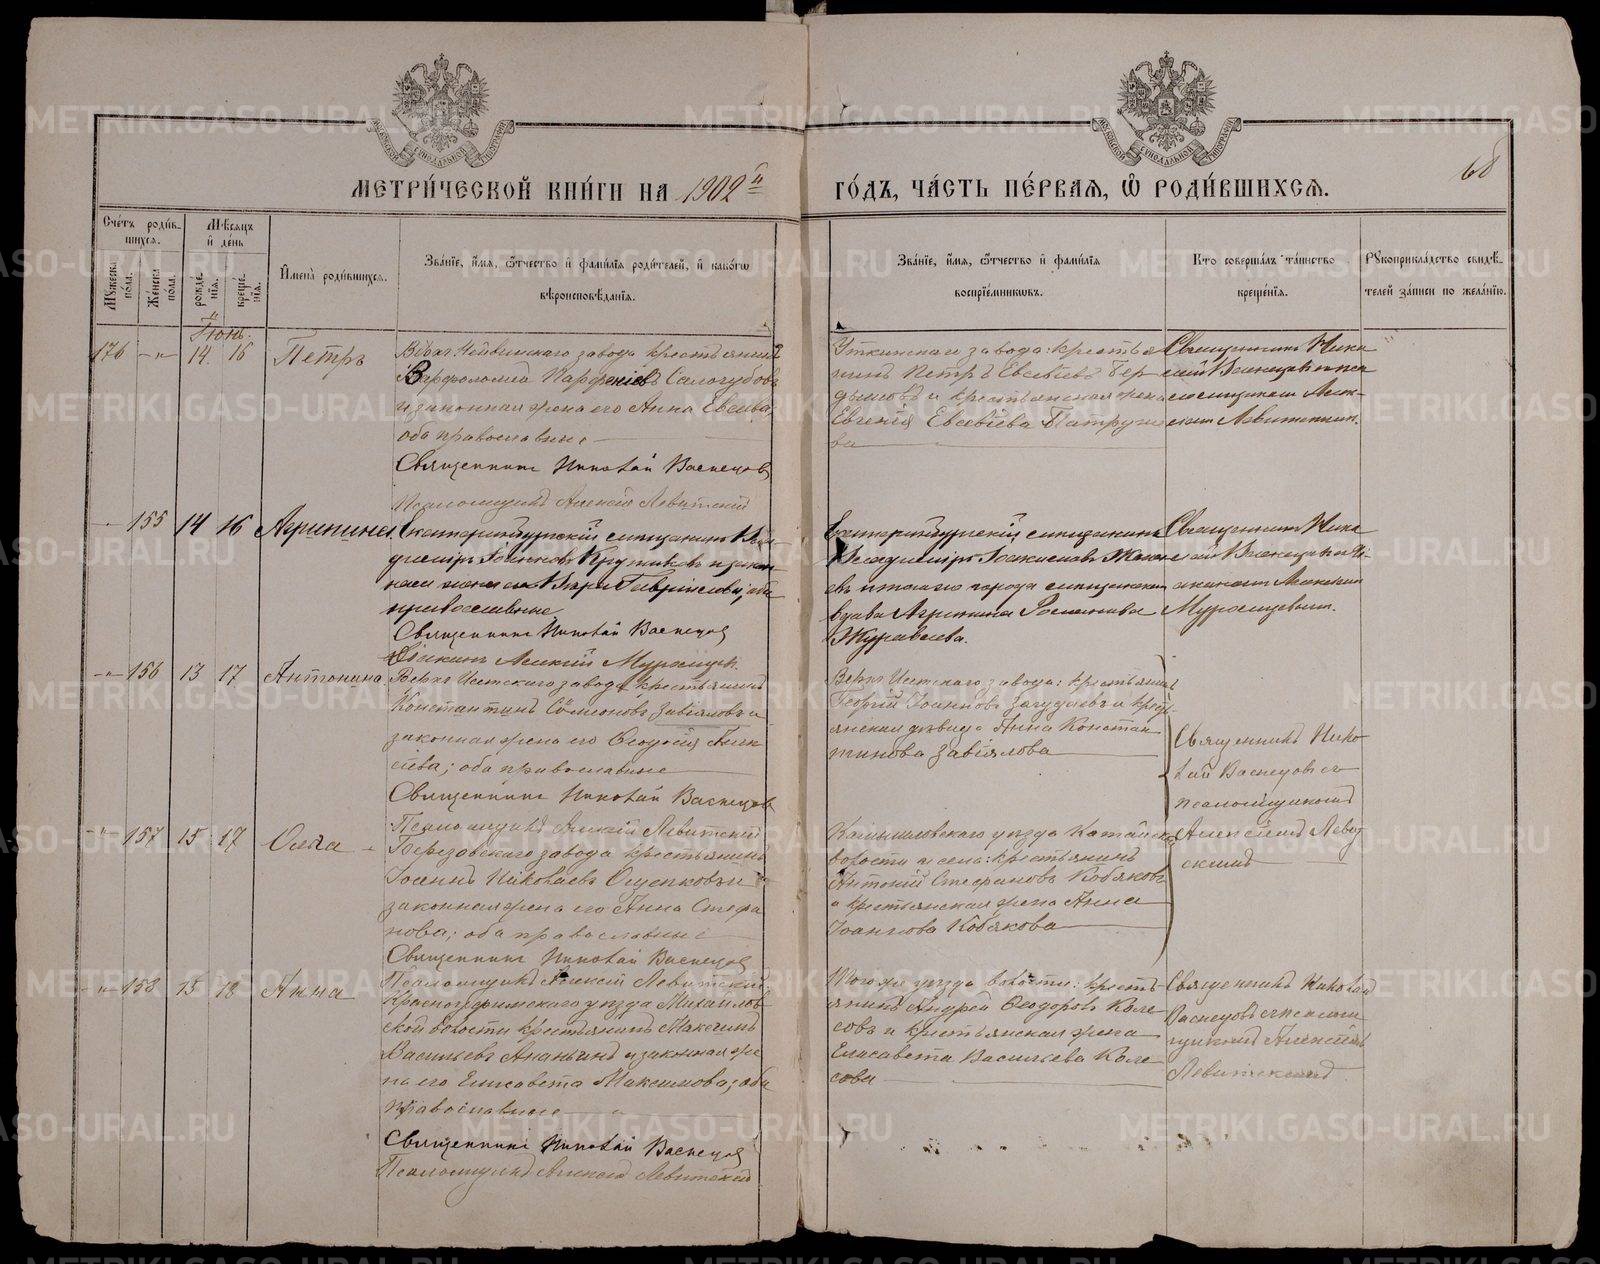 МЕТРИ́ЧЕСКОЙ КНИ́ГИ НА 1902й
ГО́ДЪ, ЧА́СТЬ ПЕ́РВАЯ, Ѡ РОДИ́ВШИХСЯ.
68
Сче́тъ роди́в-
шихся.
Мѣсяцъ
и де́нь
Мужеска по́ла.
Же́нска по́ла.
рожде́нїя.
креще́нїя.
И́мена роди́вшихся.
Зва́нїе, и́мя, ѻ҆́тчество и фами́лїя роди́телей, и како́гѡ
вѣроисповѣ́данїя.
Зва́нїе, и́мя, ѻ҆́тчество и фами́лїя
воспрїе́мниковъ.
Кто соверша́лъ та́инство
креще́нїя.
Рукоприкла́дство свидѣ́-
телей за́писи по жела́нїю.
Іюнь.
176 -"- 14. 16 Петръ
Верхъ Нейвинскаго завода крестьянинъ
Варфоломей Парфеніевъ Сологубовъ
и законная жена его Анна Евсіева,
оба православные
Священникъ Николай Васнецовъ
Псаломщикъ Алексій Левитскій
Уткинскаго завода: крестья
нинъ Петръ Евсевіевъ
и крестьянская жена
Евгенія Евсевіева
ва
Священникъ Нико
лай Васнецовъ
псаломщикомъ Алек-
сіемъ Левитскимъ.
155 14 16 Агрипина.
Екатеринбургскій мѣщанинъ Вла
диміръ Іоанновъ Кругликовъ и закон
ная жена его Гавріилова, оба
православные
Священникъ Николай Васнецовъ
Діаконъ Алексій Муромцевъ.
Екатеринбургскій мѣщанинъ
Владиміръ
въ и того же города мѣщанская
вдова Агрипина Романова
Журавлева.
Священникъ Нико
лай Васнецовъ и ді
акономъ Алексіемъ
Муромцевымъ.
-"- 156 13 17 Антонина.
Верхъ Исетскаго завода крестьянинъ
Константинъ Симеоновъ Завіяловъ и
законная жена его Ѳеодосія Алек
сіева; оба православные
Священникъ Николай Васнецовъ
Псаломщикъ Алексій Левитскій
Верхъ Исетскаго завода: крестьянинъ
Георгій Іоанновъ и крест
янская дѣвица Анна Констан
тинова Завіялова
Священникъ Нико
лай Васнецовъ съ
псаломщикомъ
Алексіемъ Левит
скимъ
-"- 157 15 17 Ольга
Березовскаго завода крестьянинъ
Іосифъ Николаевъ Ощепковъ и
законная жена его Анна Стефа
нова; оба православные
Священникъ Николай Васнецовъ
Псаломщикъ Алексій Левитскій
Камышловскаго уѣзда Катайск
волости и села: крестьянинъ
Антоній Стефановъ Кобяковъ
и крестьянская жена Анна
Іоаннова Кобякова
-"- 158 15 18 Анна
Красноуфимскаго уѣзда Михайлов
ской волости крестьянинъ Максимъ
Васильевъ Ананьинъ и законная же
на его Елисавета Максимова; оба
православные
Священникъ Николай Васнецовъ
Псаломщикъ Алексій Левитскій
Того же уѣзда волости: кресть
янинъ Андрей Ѳеодоровъ Коле
совъ и крестьянская жена
Елисавета Васильева Коле
сова
Священникъ Николай
Васнецовъ съ псаломщ
щикомъ Алексіемъ
Левитскимъ.